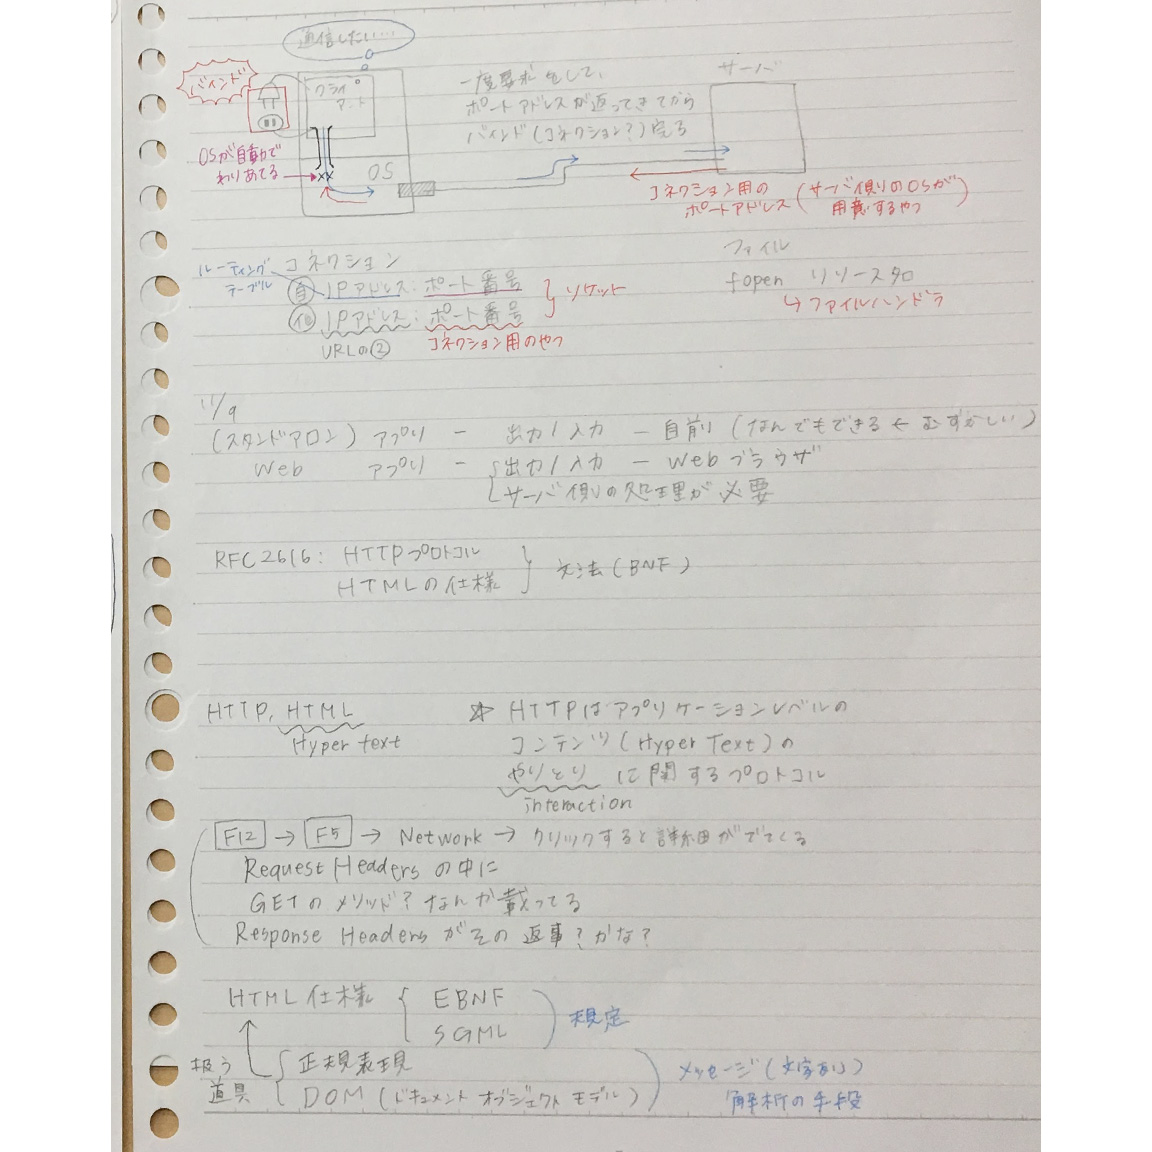 通信したい…
バインド
クライアント
OSが自動でわりあてる
OS
一度要求をして、
ポートアドレスが返ってきてから
バインド(コネクション?)完了
サーバ
コネクション用の
ポートアドレス
(サーバ側のOSが
用意するやつ)
ルーティング
テーブル
コネクション
自 IPアドレス:ポート番号
他 IPアドレス:ポート番号
ソケット
URLの②
コネクション用のやつ
ファイル
fopen リソースタロ
↳ファイルハンドラ
11/9
(スタンドアロン) アプリ ー 出力/入力 ー 自前 (なんでもできる ← むずかしい)
Web アプリ ー 出力/入力 ー Webブラウザ
サーバ側の処理が必要
RFC2616: HTTPプロトコル
HTMLの仕様
文法(BNF)
HTTP, HTML
Hyper text
☆ HTTPはアプリケーションレベルの
コンテンツ(Hyper Text)の
やりとり に関するプロトコル
interaction
F12 → F5 → Network → クリックすると詳細がでてくる
Request Headers の中に
GETのメソッド?なんか載ってる
Response Headersがその返事?かな?
HTML仕様
EBNF
SGML
規定
扱う
道具
正規表現
DOM (ドキュメント オブジェクト モデル)
メッセージ(文字あり)
解析の手段